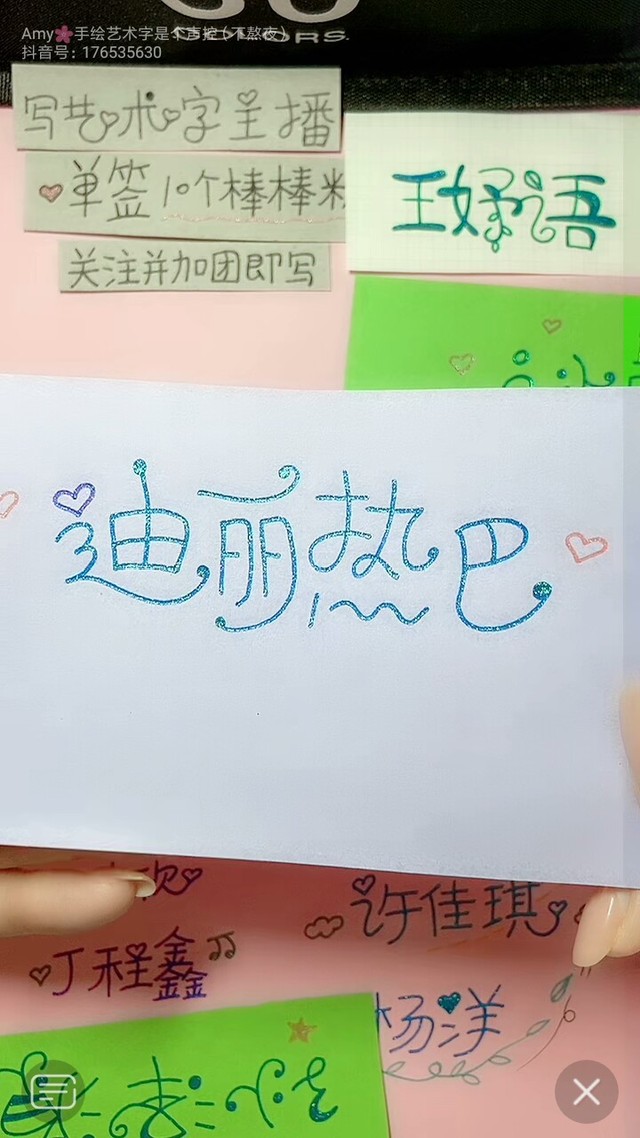 Amy🌸手绘艺术字是个声控(不熬夜)
抖音号: 176535630
写艺术字主播
单签10个棒棒
关注并加团即写
王妤语
迪丽热巴
欣
许佳琪
丁程鑫
杨洋